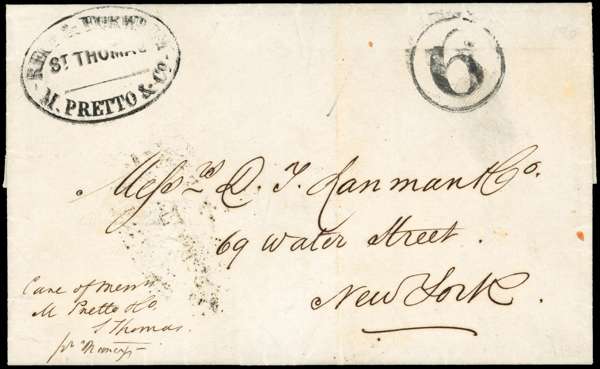 REC'D & FORW'D BY
ST THOMAS
M. PRETTO & Co.
6
Messrs D. T. Lanman & Co.
69 Water Street.
New York.
Care of Messrs
M Pretto & Co
S Thomas.
pr